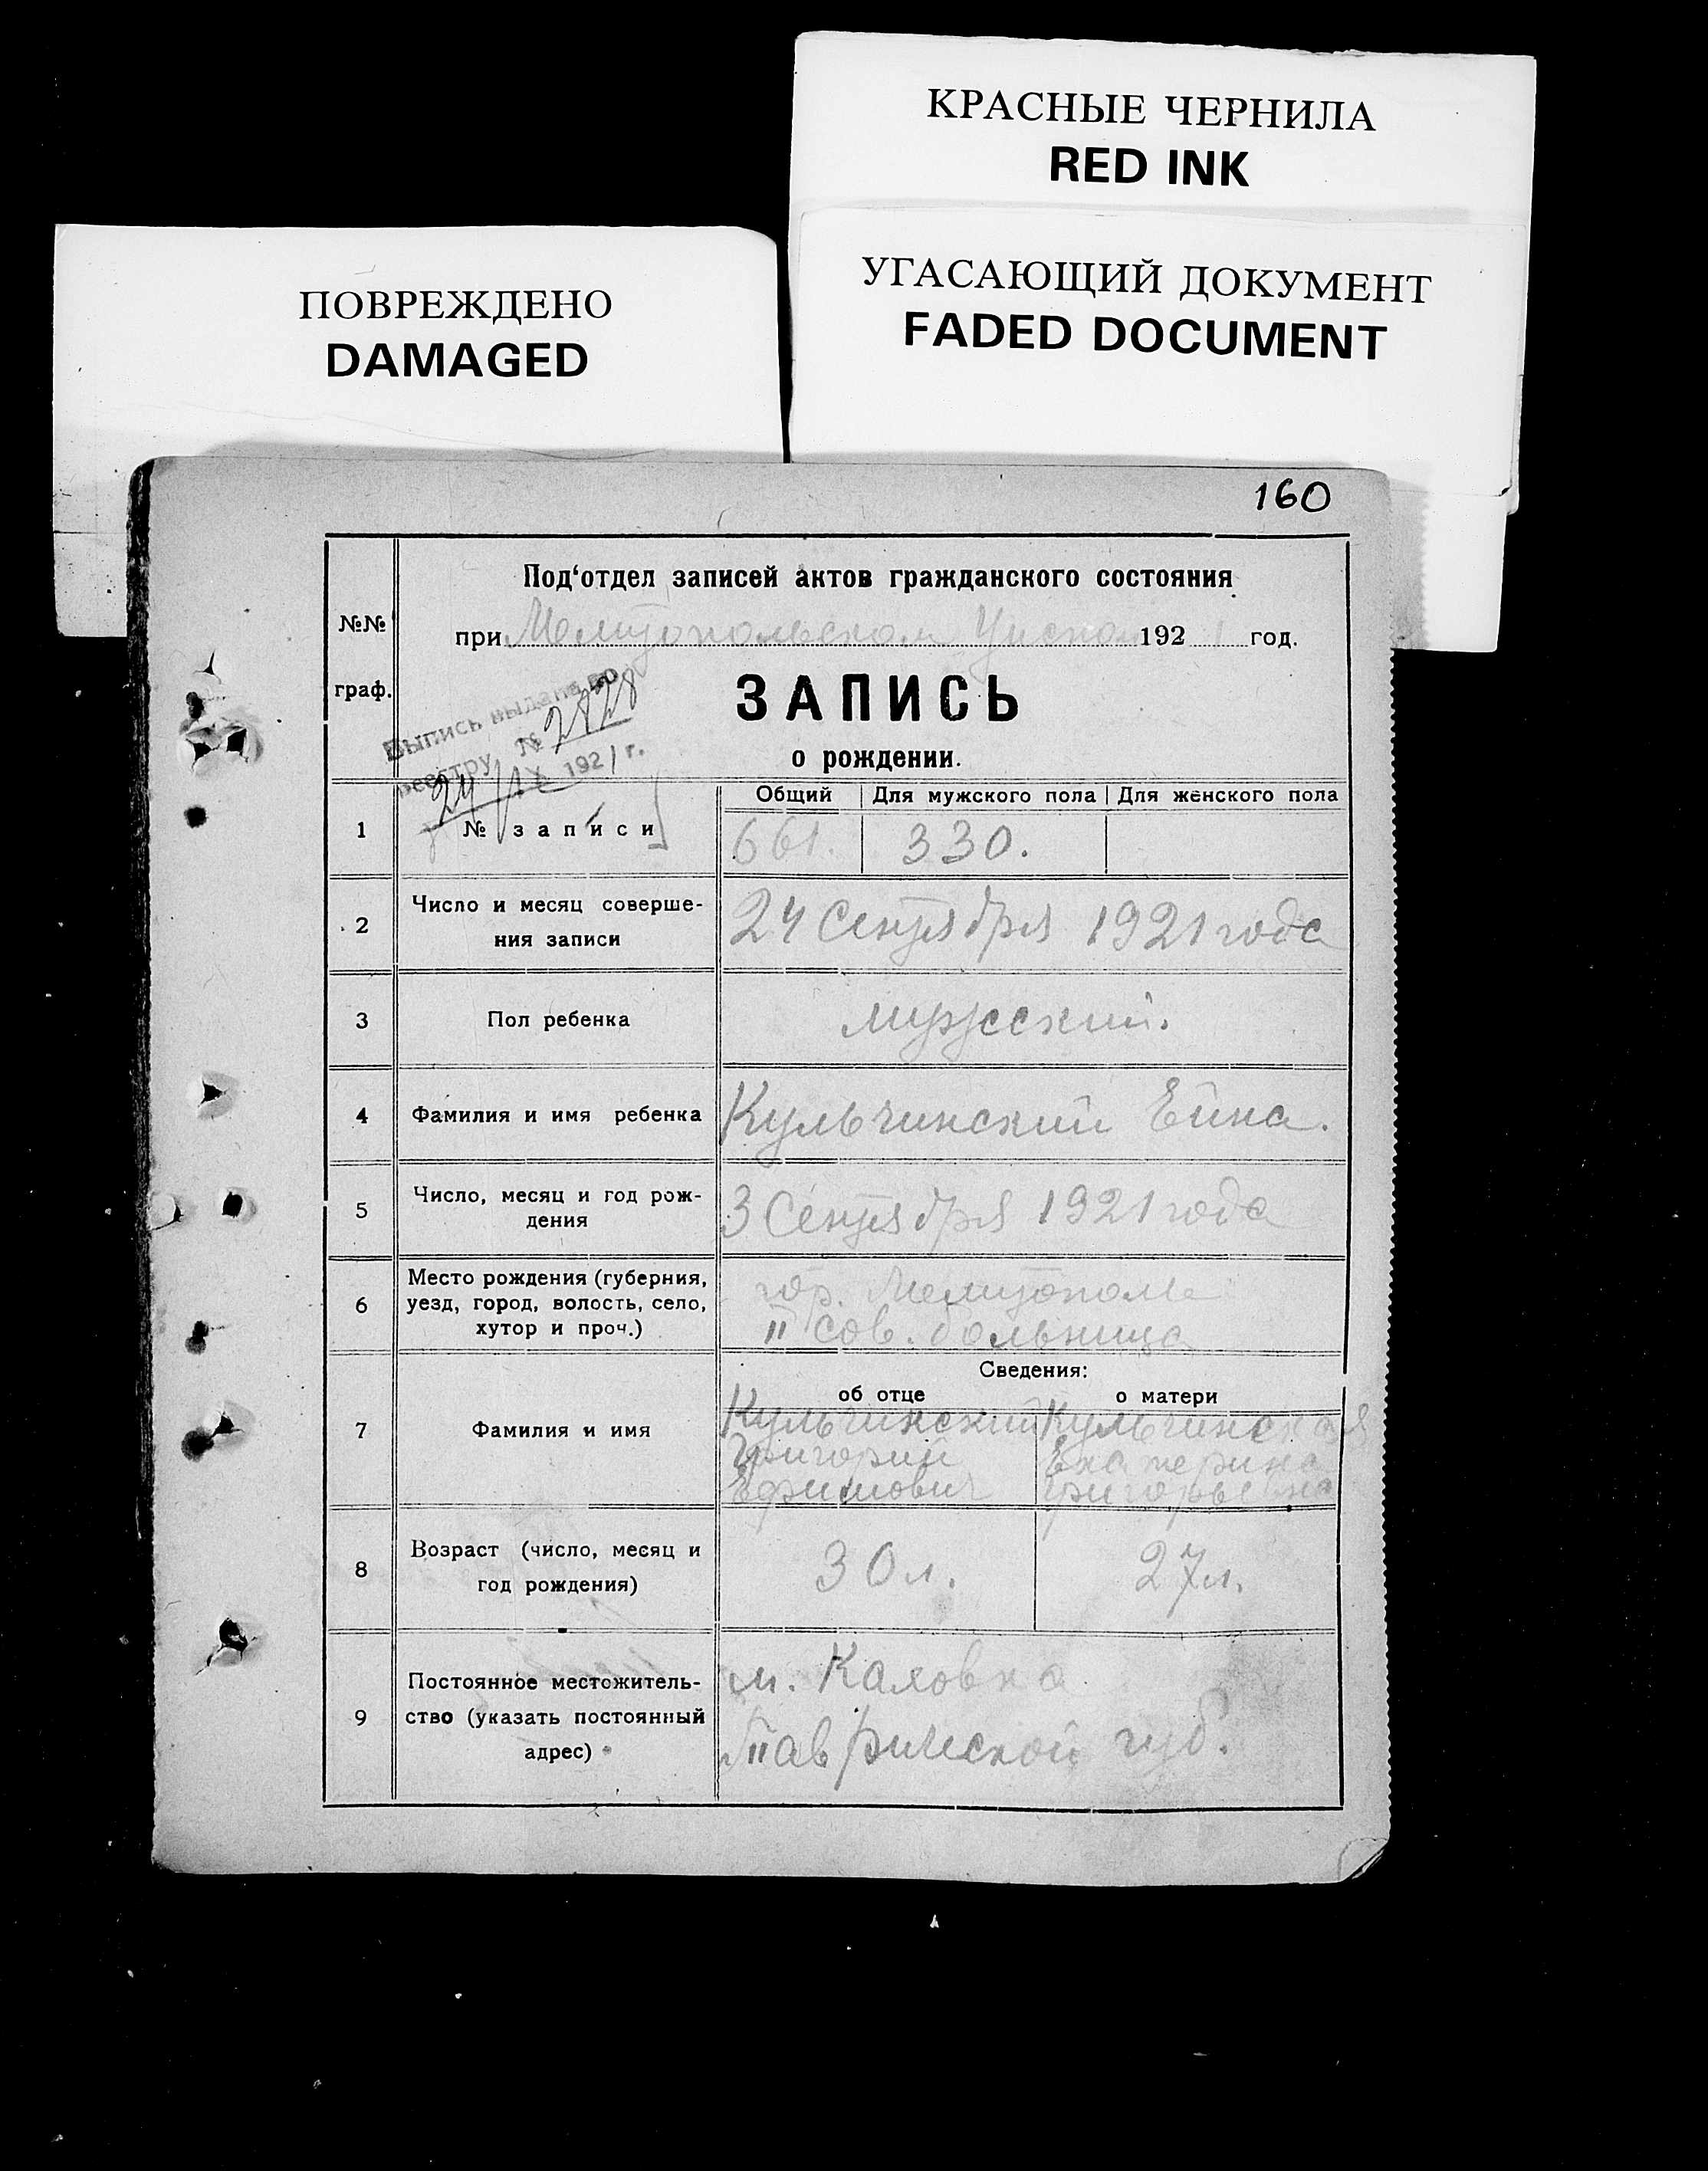 КРАСНЫЕ ЧЕРНИЛА
RED INK
УГАСАЮЩИЙ ДОКУМЕНТ
FADED DOCUMENT
ПОВРЕЖДЕНО
DAMAGED
160
№№
граф.
Под‘отдел записей актов гражданского состояния
при Мелитопольском 192 1 год.
Выпись выдана по
реестру № 2828
24/IX 1921 г.
ЗАПИСЬ
о рождении.
Общий Для мужского пола Для женского пола
1 № записи 661. 330.
2 Число и месяц соверше-
ния записи
24 Сентября 1921 года
3 Пол ребенка мужеский.
4 Фамилия и имя ребенка Кульчинский Ейна.
5 Число, месяц и год рож-
дения
3 Сентября 1921 года
6 Место рождения (губерния,
уезд, город, волость, село,
хутор и проч.)
гор. Мелитополе
II сов. больница
Сведения:
об отце о матери
7 Фамилия и имя
Кульчинский Кульчинская
Григорий Екатерина
Ефимович Григорьевна
8 Возраст (число, месяц и
год рождения)
30 л. 27 л.
9 Постоянное местожитель-
ство (указать постоянный
адрес)
м. Каховка
Таврической губ.